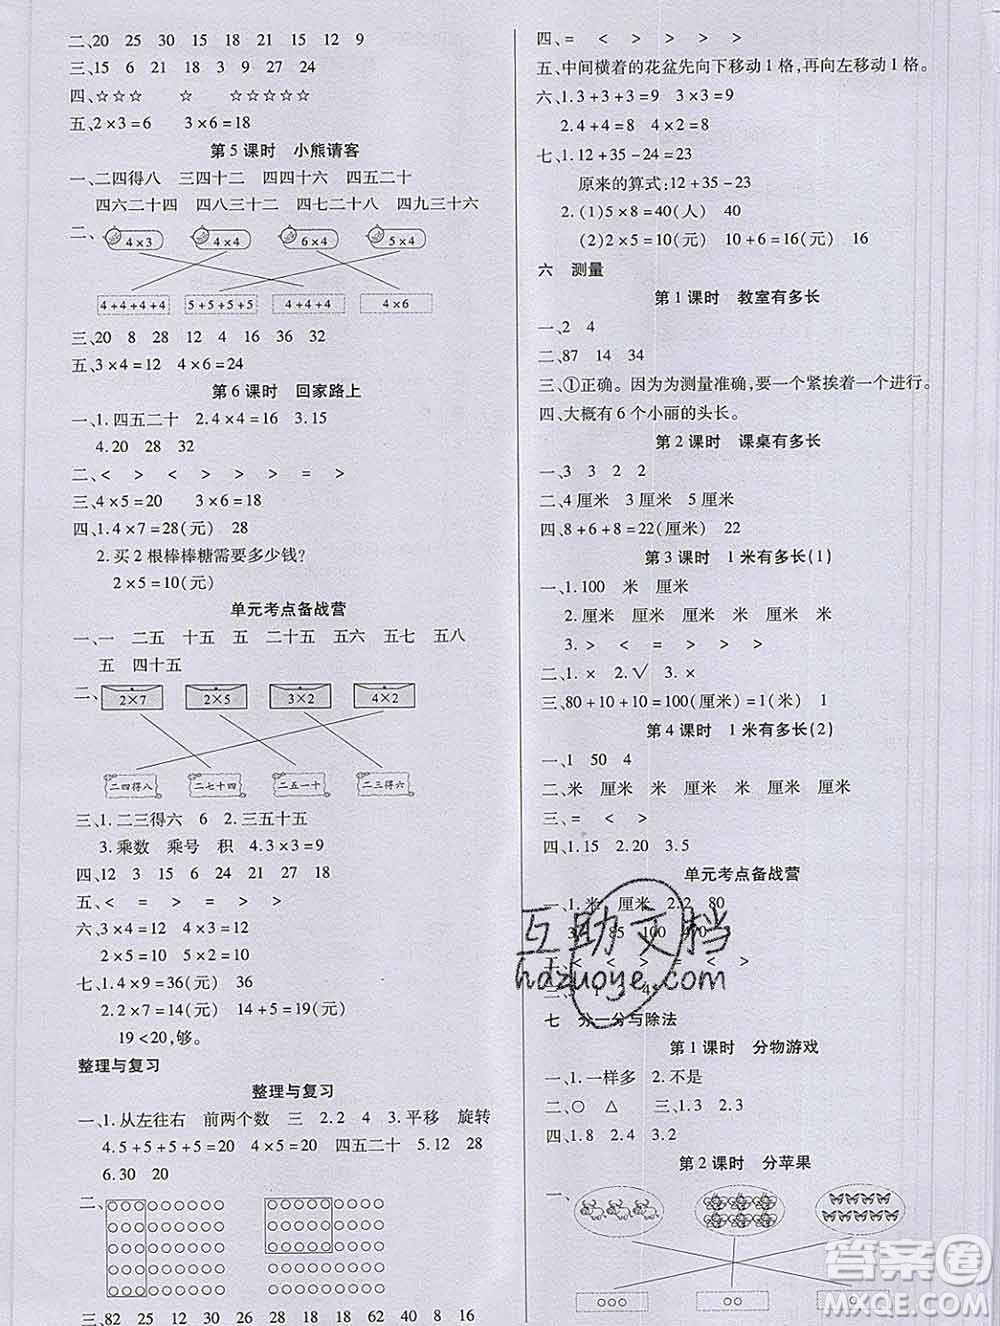 二、20 25 30 15 15 20 15 12 9
三、15 6 15 8 30 27 24
四、☆☆☆ ☆ ☆☆☆☆☆
五、2×3=6 3×6=18
第5课时 小熊请客
一、二四得八 三四十二 四四十六 四五二十
四六二十四 四八三十二 四七二十八 四九三十六
二、 4×3 4×4 6×4 5×4
4+4+4+4 5+5+5+5 4+4+4 4×6
三、20 8 28 12 4 16 36 32
五、3×4=12 4×6=24
第6课时 回家路上
一、1.四五二十 2.4×4=16 3.15
4.20 28 32
二、< > < > > > = >
三、4×5=20 3×6=18
四、1.4×7=28(元) 28
2.买2根棒棒糖需要多少钱?
2×5=10(元)
单元考点备战营
一、一 二五 十五 五 二十五 五六 五七 五八
五 四十五
二、 2×7 2×5 3×2 4×2
二四得八 二七十四 二五一十 二三得六
三、1.二三得六 6 2.三五十五
3.乘数 乘号 积 4.3×3=9
四、12 3 15 6 24 30 25 32
五、< = > = > >
六、3×4=12 4×3=12
2×5=10 5×2=10
七、1.4×9=36(元) 36
2.2×7=14(元) 14+5=19(元)
19<20,够。
整理与复习
整理与复习
一、1.从左往右 前两个数 三 2.2 4 3.平移 旋转
4.5+5+5+5=20 4×5=20 四五二十 5.12 28
6.30 20
二、
三、82 25 12 30 26 18 40 8 16
四、= < < > > >
五、中间横着的花盆先向下移动1格,再向左移动1格。
六、1.3+3+3=9 3×3=9
2.4+4=8 4×2=8
七、1.12+35-24=23
原来的算式:12+35-23
2.(1)5×8=40(人) 40
(2)2×5=10(元) 10+6=16(元) 16
六 测量
第1课时 教室有多长
一、2 4
二、87 14 34
三、①正确。因为为测量准确,要一个紧挨着一个进行。
四、大概有6个小丽的头长。
第2课时 课桌有多长
一、3 3 2 2
二、4厘米 3厘米 5厘米
四、8+6+8=22(厘米) 22
第3课时 1米有多长(1)
一、1.100 米 厘米
2.厘米 厘米 米 厘米 米 厘米
3.> < = > > >
二、1.× 2.√ 3.×
三、80+10+10=100(厘米)=1(米) 1
第4课时 1米有多长(2)
一、1 50 4
二、米 厘米 厘米 米 厘米 厘米 厘米
三、= < > >
四、1.15 2.20 3.5
单元考点备战营
一、1.米 厘米 2.2 80
85 100
< < > = < >
七 分一分与除法
第1课时 分物游戏
一、1.一样多 2.不是
二、○ △ 三、1.3 2.3
四、1.8 2.4 3.2
第2课时 分苹果
一、
○○○ ○○
互助文档
hdzuoye.com
答案圈
MXQE.COM